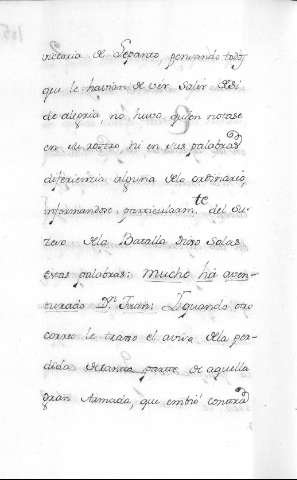 victoria de Lepanto, pensando todos
que le havian de ver salir de si
de alegria, no huvo quien notase
en su rostro, ni en sus palabras
diferiencia alguna de lo ordinario,
informandose, particularm.te del Su-
zeso de la Batalla dixo solas
estas palabras: mucho há aven-
turado D.n Juan: Y quando otro
correo le traxo el aviso de la per-
dida de tanta parte de aquella
gran Armada, que embió contra